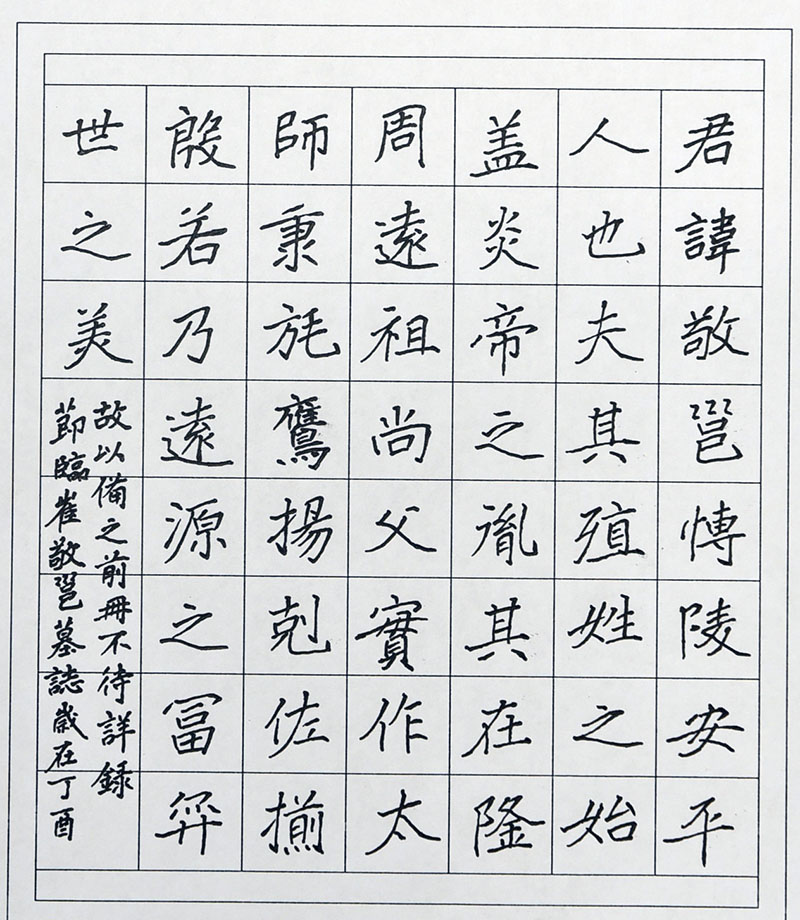 君諱敬邕愽陵安平
人也夫其殖姓之始
盖炎帝之胤其在隆
周遠祖尚父實作太
師秉旄鷹揚剋佐揃
殷若乃遠源之冨弈
世之美
故以備之前冊不待詳録
節臨崔敬邕墓誌歲在丁酉